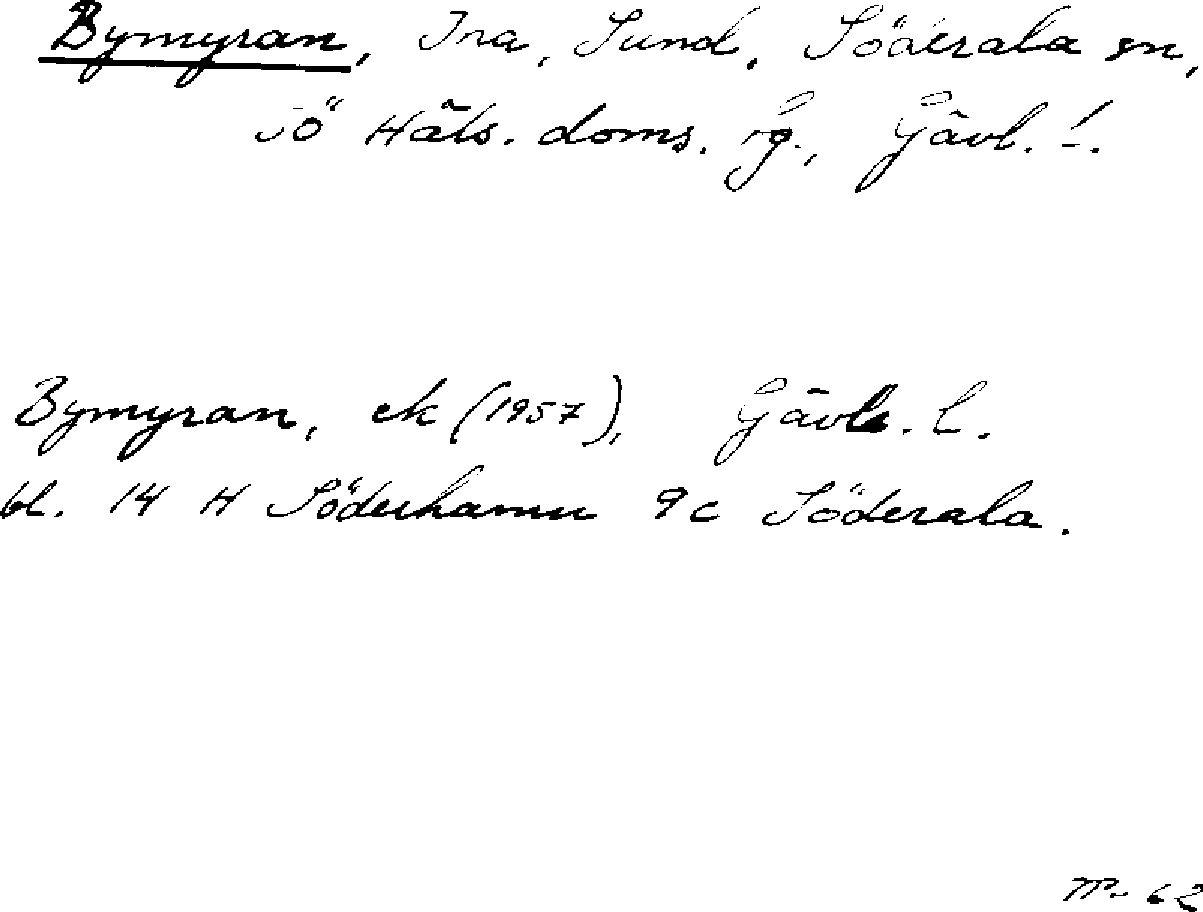 Bymyran, Ina, Sund, Söderala sn,
Sö Häls. doms. sg., Gävl. l.
Bymyran, ek (1957), Gävle. l.
bl. 14 H Söderhamn 9c Söderala.
62